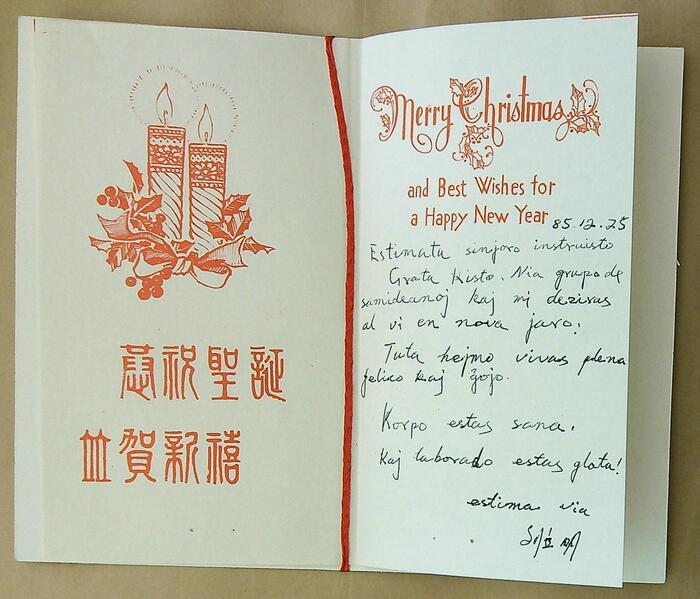 恭祝聖誕
並賀新禧
Merry Christmas
and Best Wishes for
a Happy New Year
85.12.25
Estimata sinjoro instruisto
Grata Kisto. Nia grupo de
samideanoj kaj mi deziras
al vi en nova jaro:
Tuta hejmo vivas plena
feliĉo kaj ĝojo.
Korpo estas sana.
Kaj laborado estas glata!
estima via